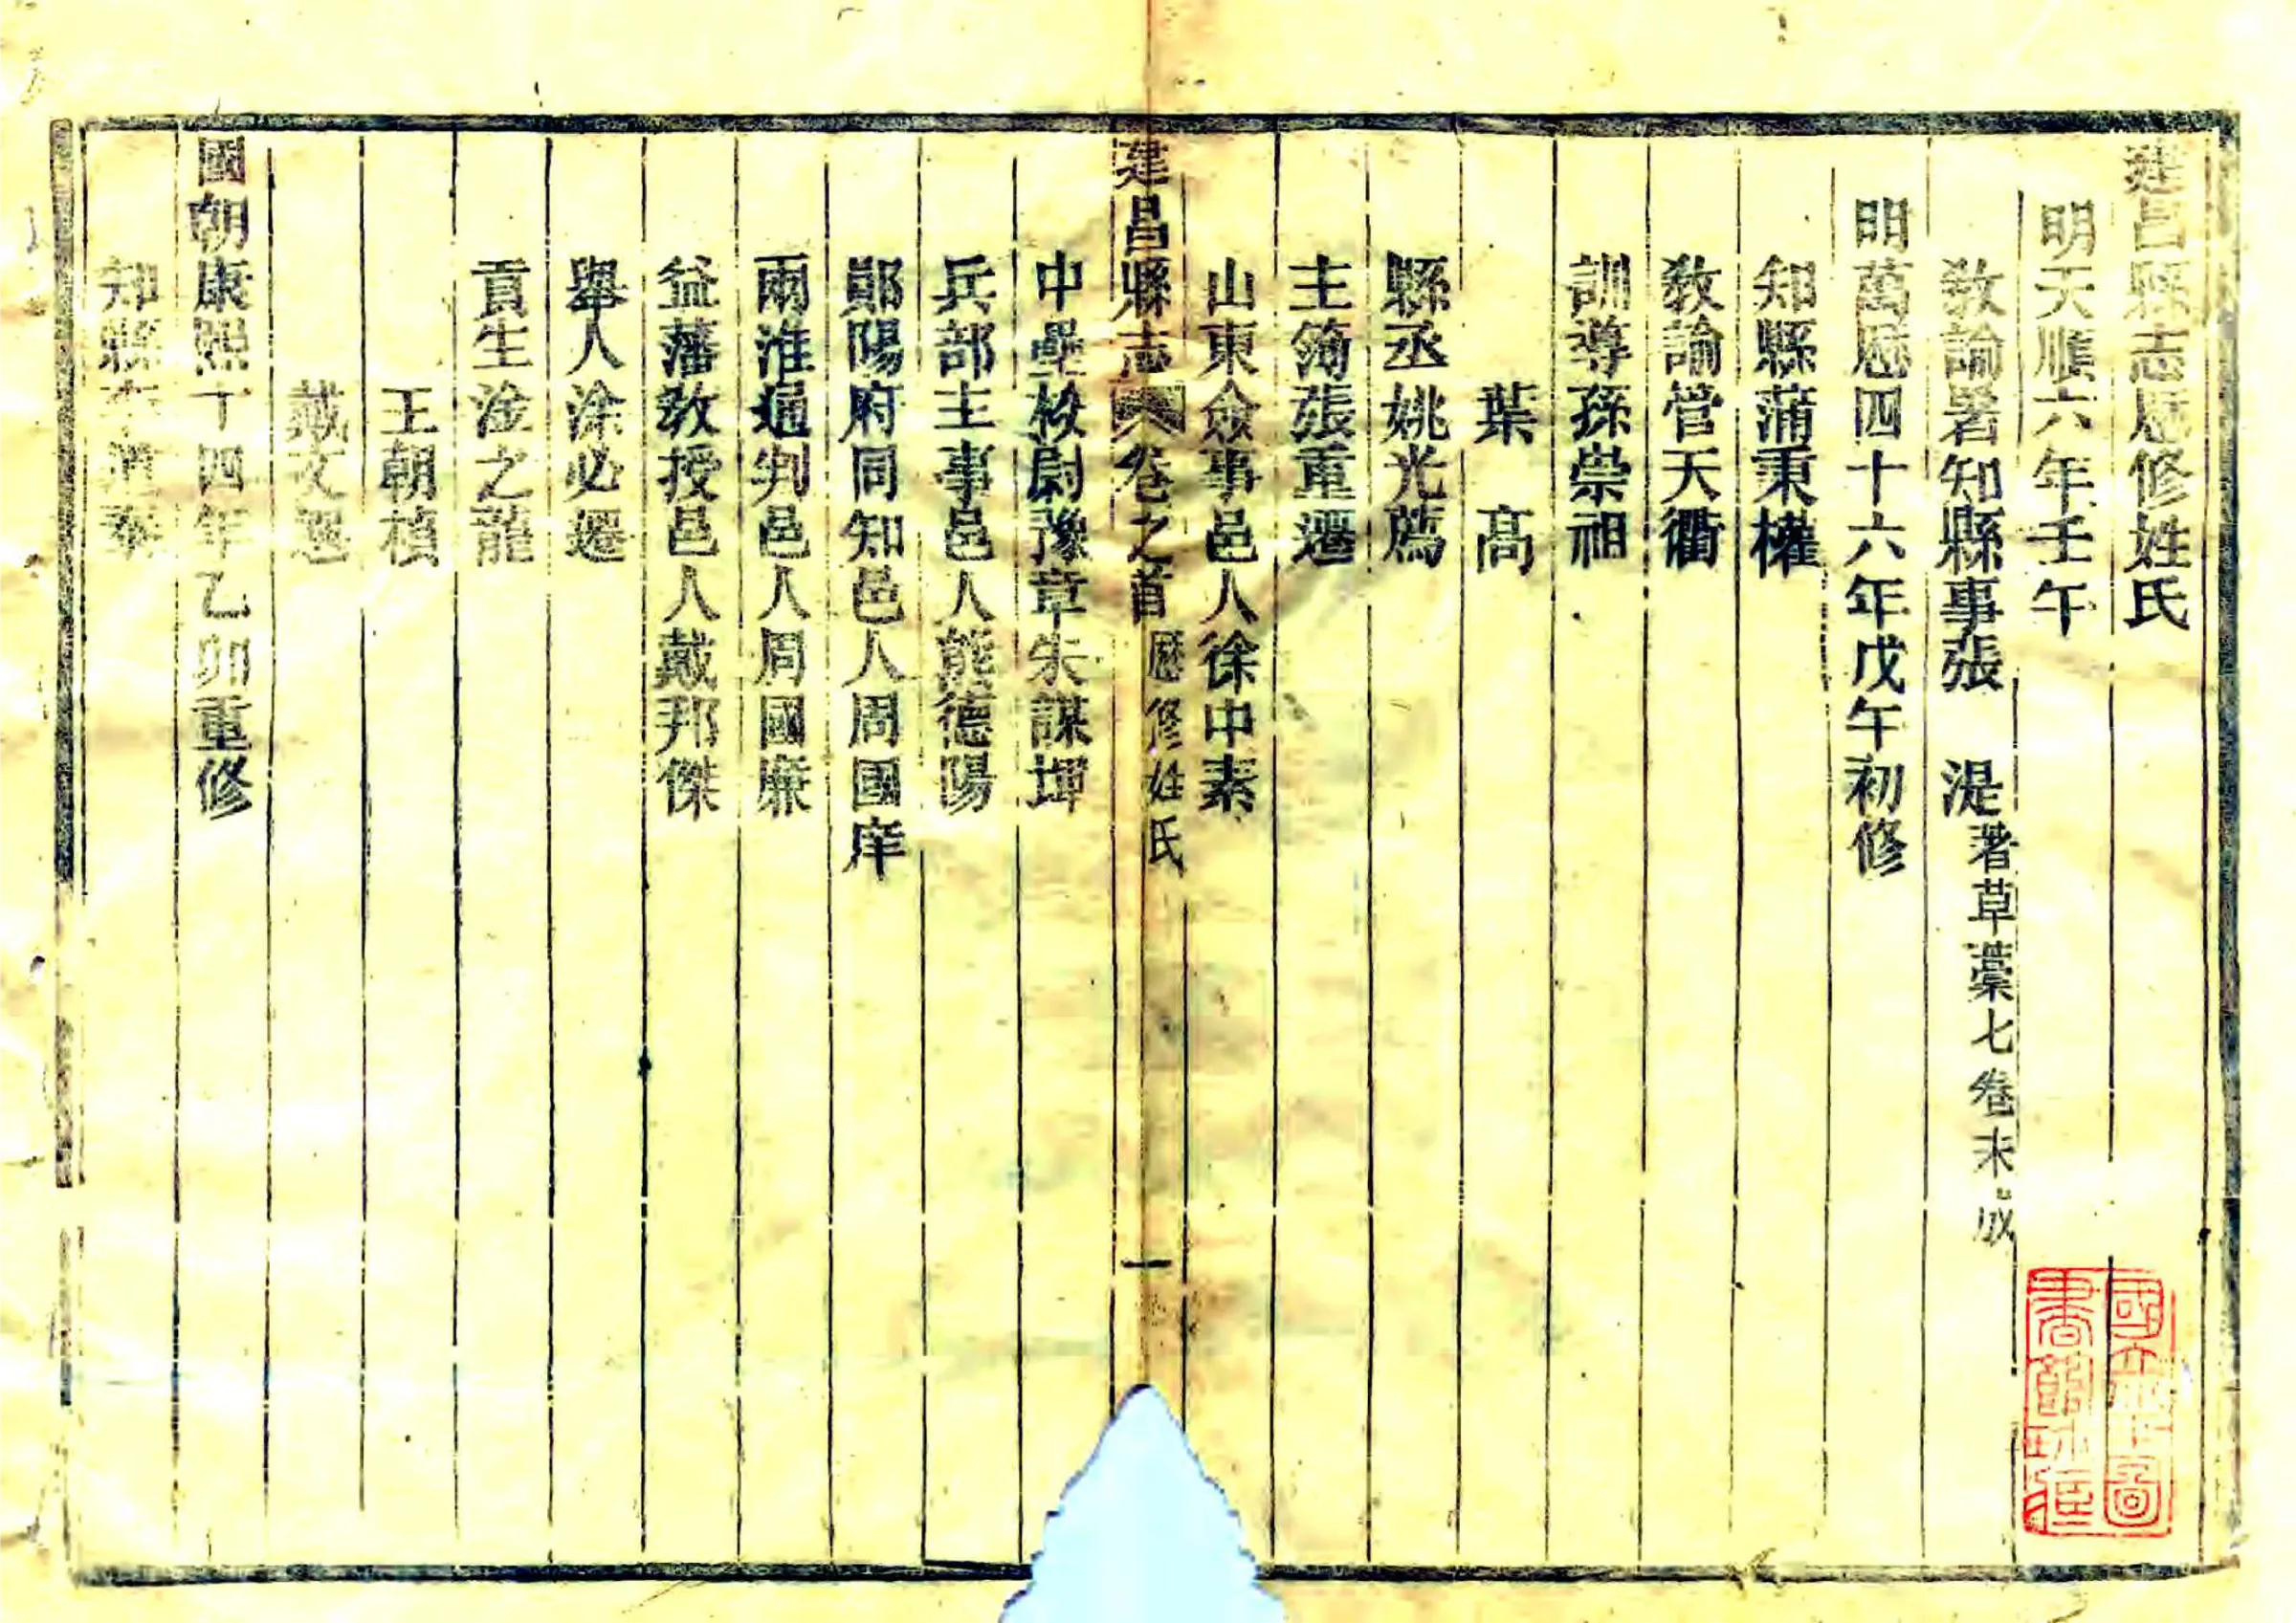 建昌縣志歷修姓氏
明天順六年壬午
教諭署知縣事張 湜著草藁七卷未成
明萬歷四十六年戊午初修
知縣蒲秉權
教諭管天衢
訓導孫崇祖
葉 高
縣丞姚光薦
主簿張重遷
山東僉事邑人徐中素
建昌縣志 卷之首 歷修姓氏 一
中壘校尉豫章朱謀㙔
兵部主事邑人熊德陽
鄖陽府同知邑人周國庠
兩淮通判邑人周國廉
益藩教授邑人戴邦傑
舉人涂必遷
貢生淦之龍
王朝楨
戴文選
國朝康熙十四年乙卯重修
知縣李道泰
國立北平圖
書館珍藏